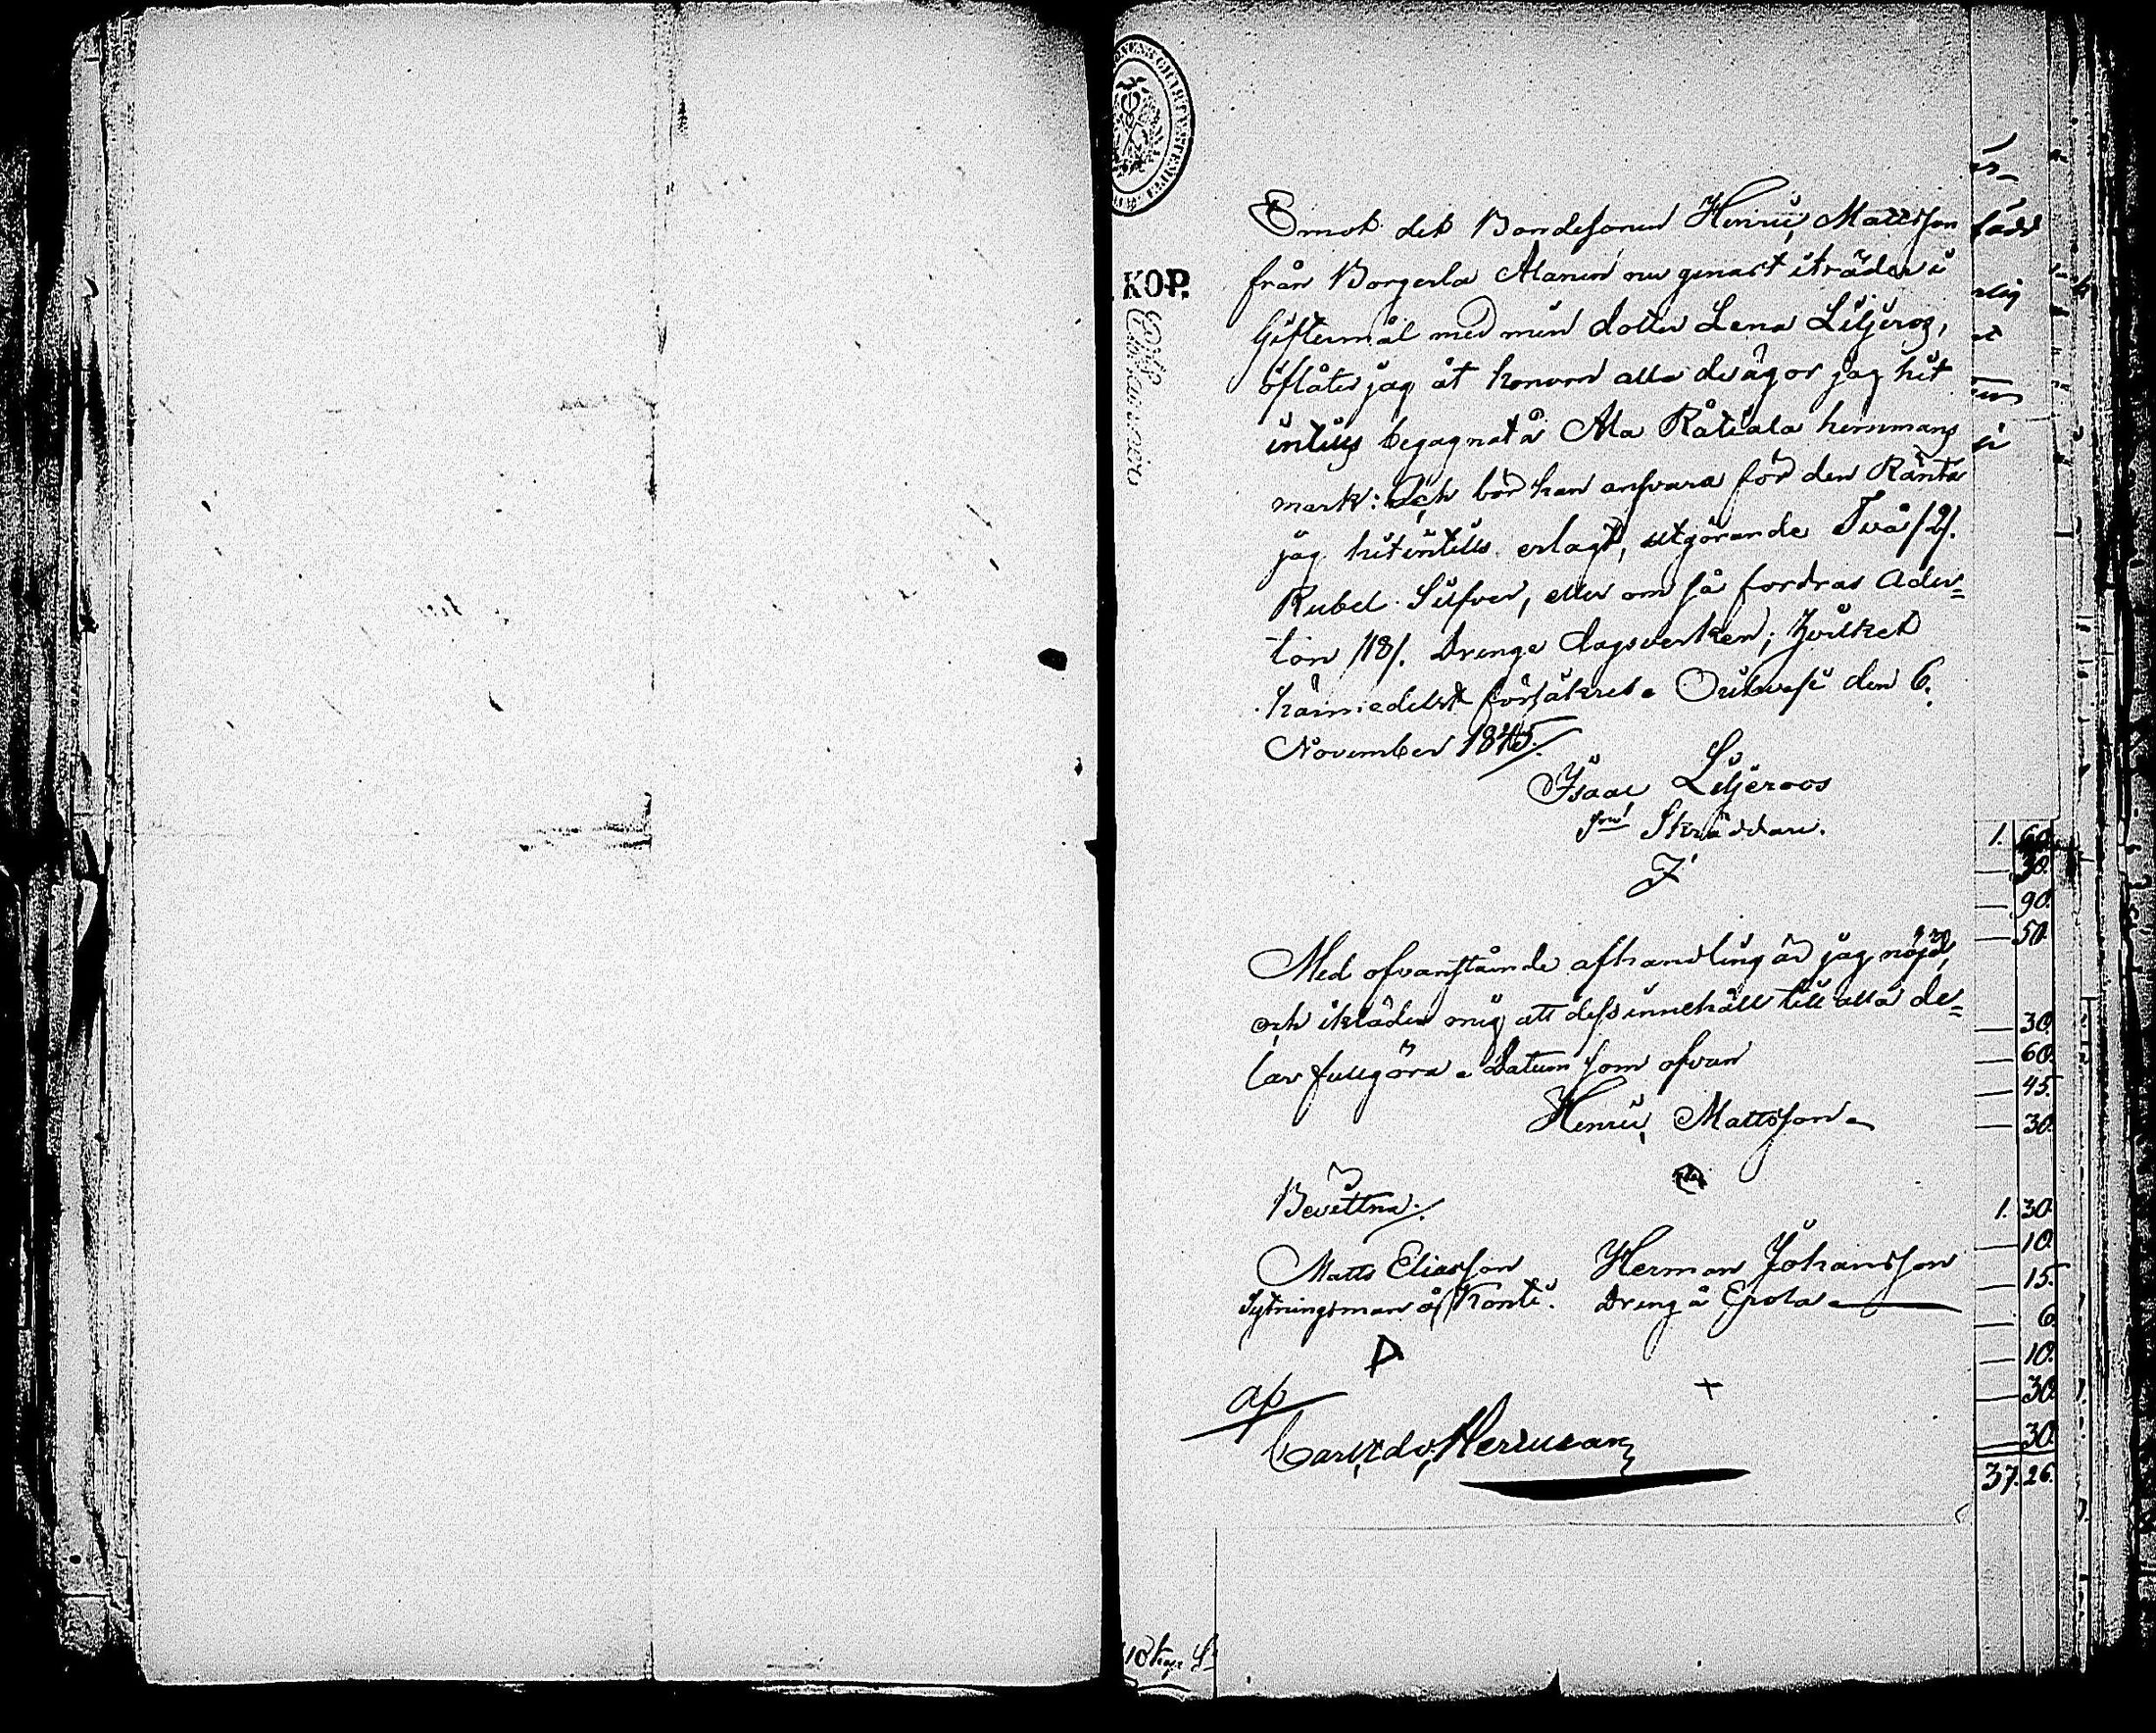 KOP.
Emot det Bondesonen Henric Mattsson
från Borgerla Alanen nu genast iträder i
Giftermål med min dotter Lena Liljeros,
öflåter jag åt honom alla de ägor jag hit
intills begagnat å Ala Rätiala hemmans
mark: Och bör han ansvara för den Ränta
jag hitintills erlagt, utgörande Två /2/.
Rubel Silfver, eller om så fordras Ader=
ton /18/. Drenge dagsverken; hvilket
härmedelst försäkres. den 6.
November 1845.
Isaac Liljeroos
Skräddare.
Med ofvanstående afhandling är jag nöjd,
och ikläder mig att dess innehåll till alla de=
lar fullgöra. Datum som ofvan
Henric Mattsson
Bevittna.
Matts Eliasson Herman Johansson
å Konti. Dreng å Epola
1. 60.
30.
90.
50.
30.
60.
45.
30.
1. 30.
10.
15.
6.
10.
30.
30.
37.26.